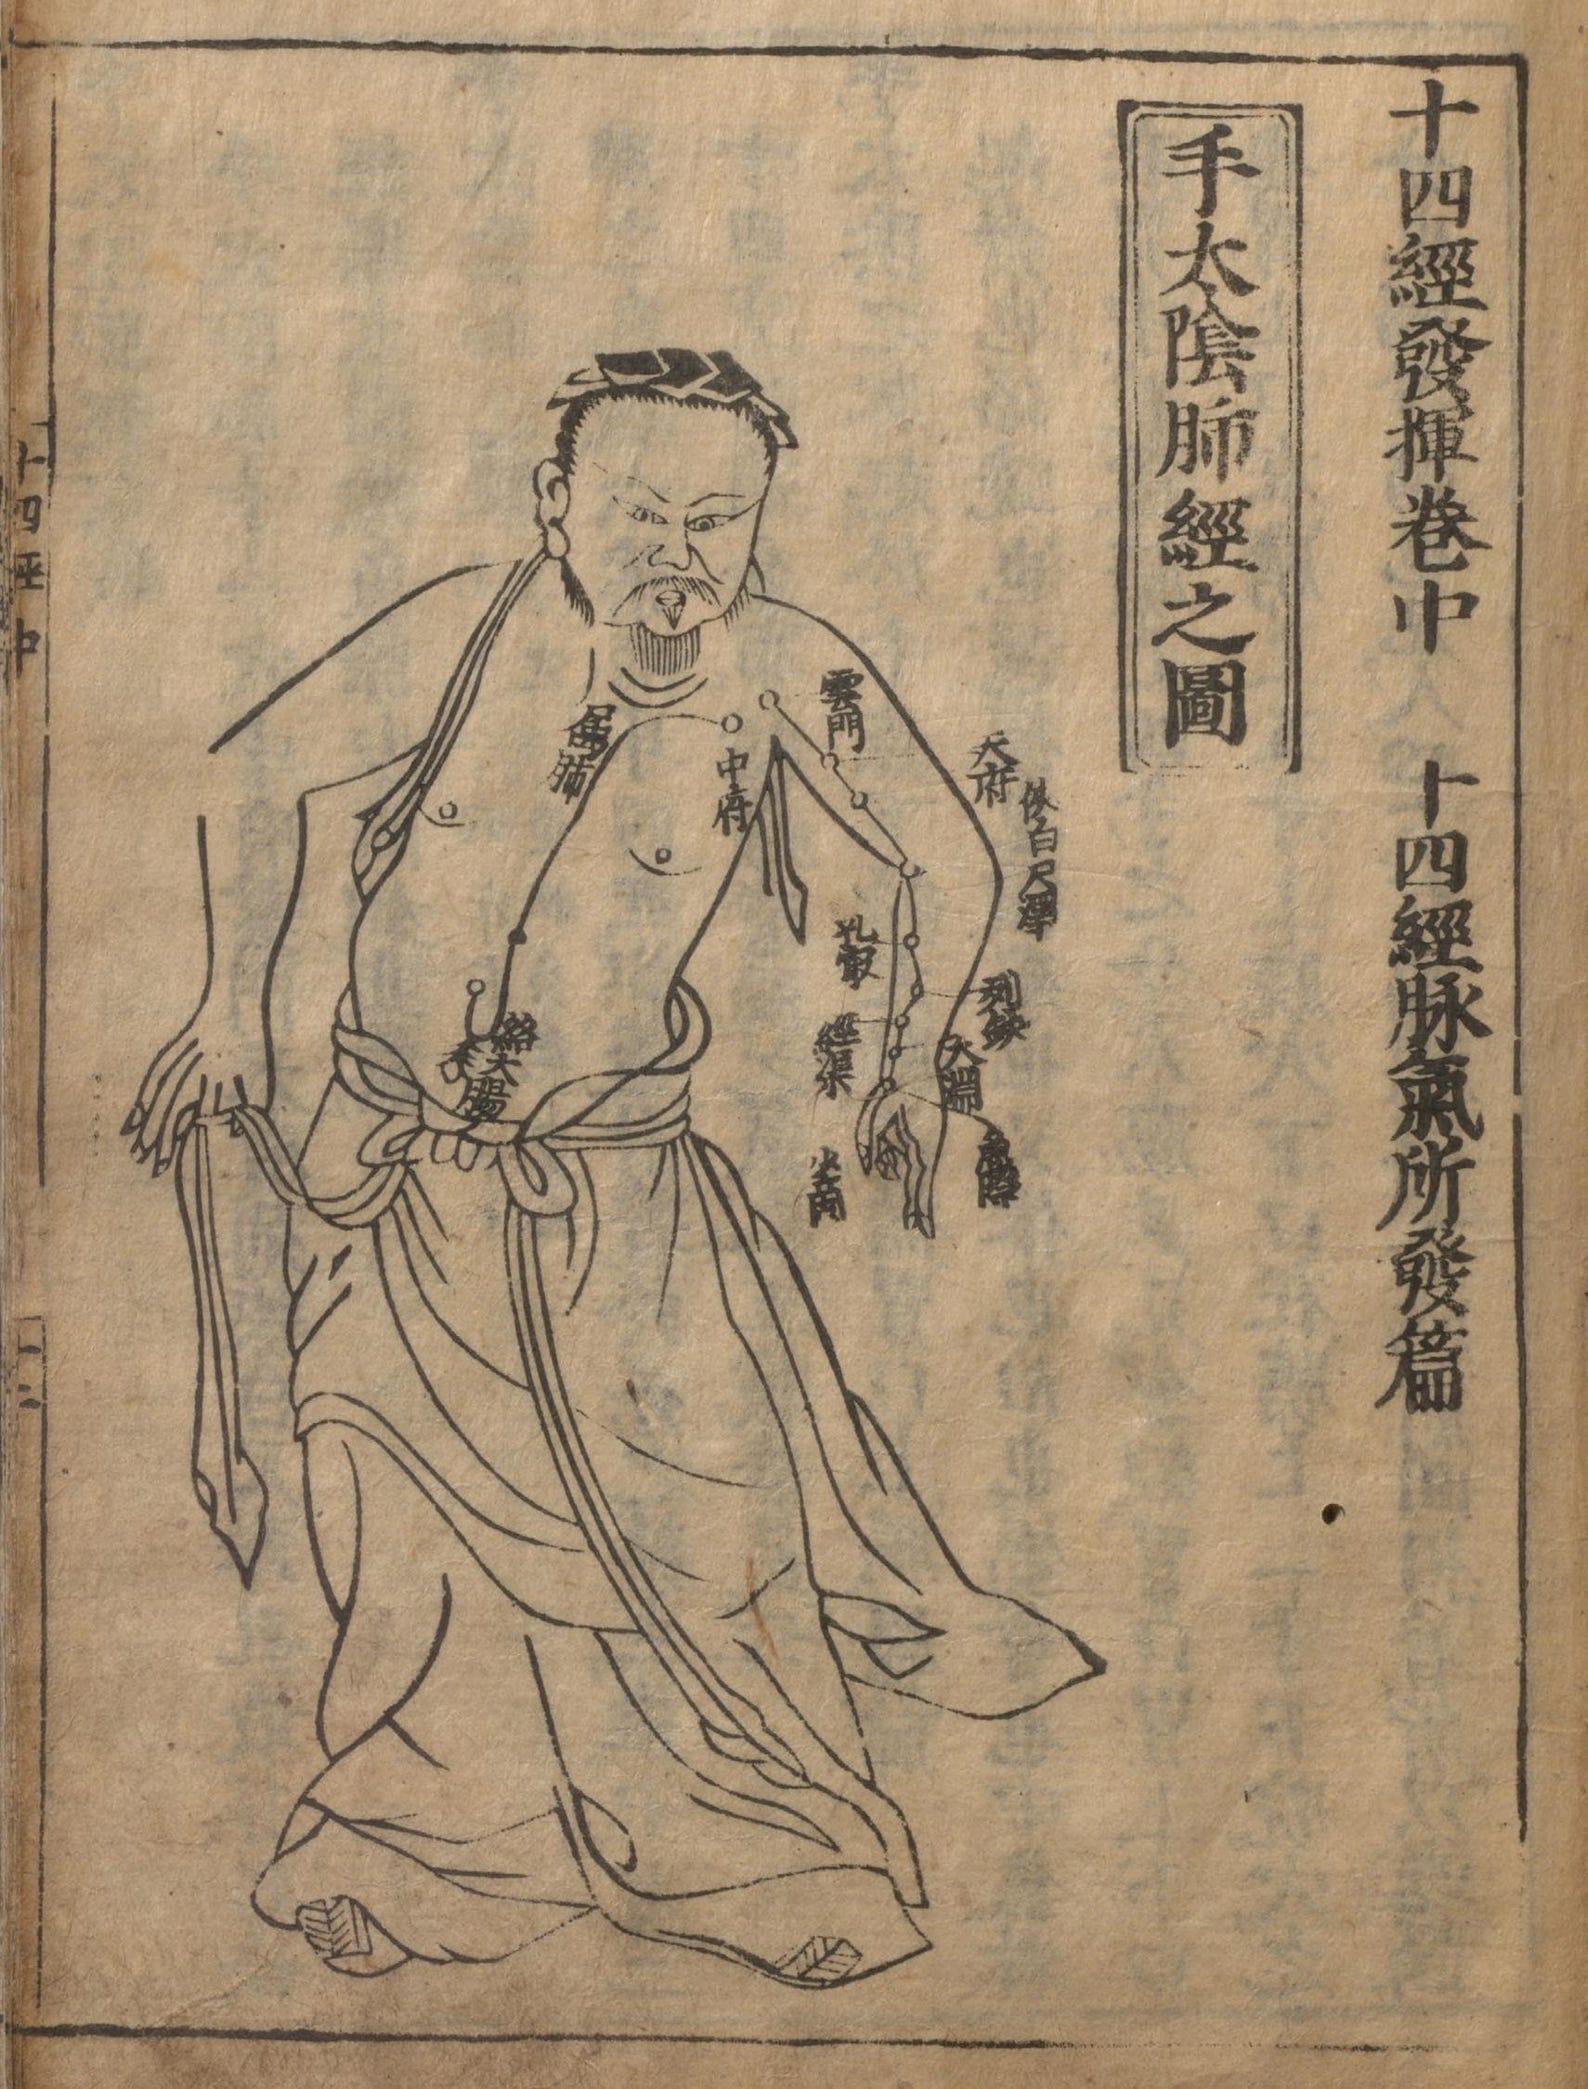 十四經發揮卷中　十四經脉氣所發篇
手太陰肺經之圖
雲門
天府
俠白
尺澤
中府
屬肺
孔最
列缺
經渠
太淵
魚際
少商
絡大腸
十四經中